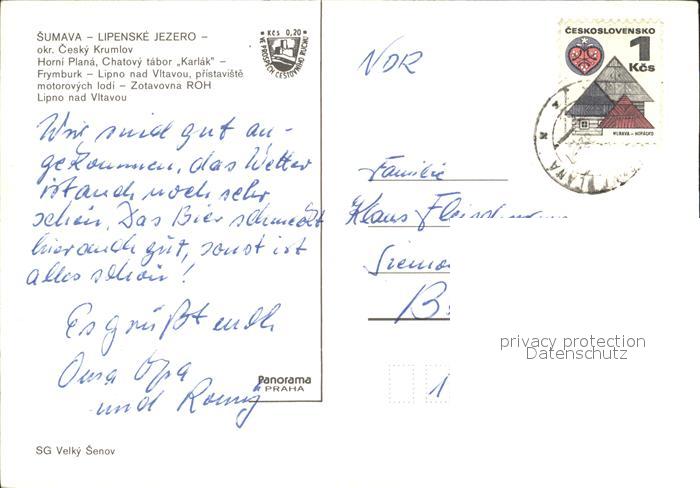 ŠUMAVA – LIPENSKÉ JEZERO –
okr. Český Krumlov
Horní Planá, Chatový tábor „Karlák" –
Frymburk – Lipno nad Vltavou, přístaviště
motorových lodí – Zotavovna ROH
Lipno nad Vltavou
Kčs 0,20
VE PROSPĚCH CESTOVNÍHO RUCHU
Wir sind gut an-
gekommen, das Wetter
ist auch noch sehr
schön. Das Bier schmeckt
hier auch gut, sonst ist
alles schön!
Es grüßt euch
Oma Opa
und Romy
Panorama
PRAHA
SG Velký Šenov
NDR
ČESKOSLOVENSKO
1
Kčs
MORAVA – HORÁCKO
PLANÁ
Familie
Klaus
B
1
privacy protection
Datenschutz